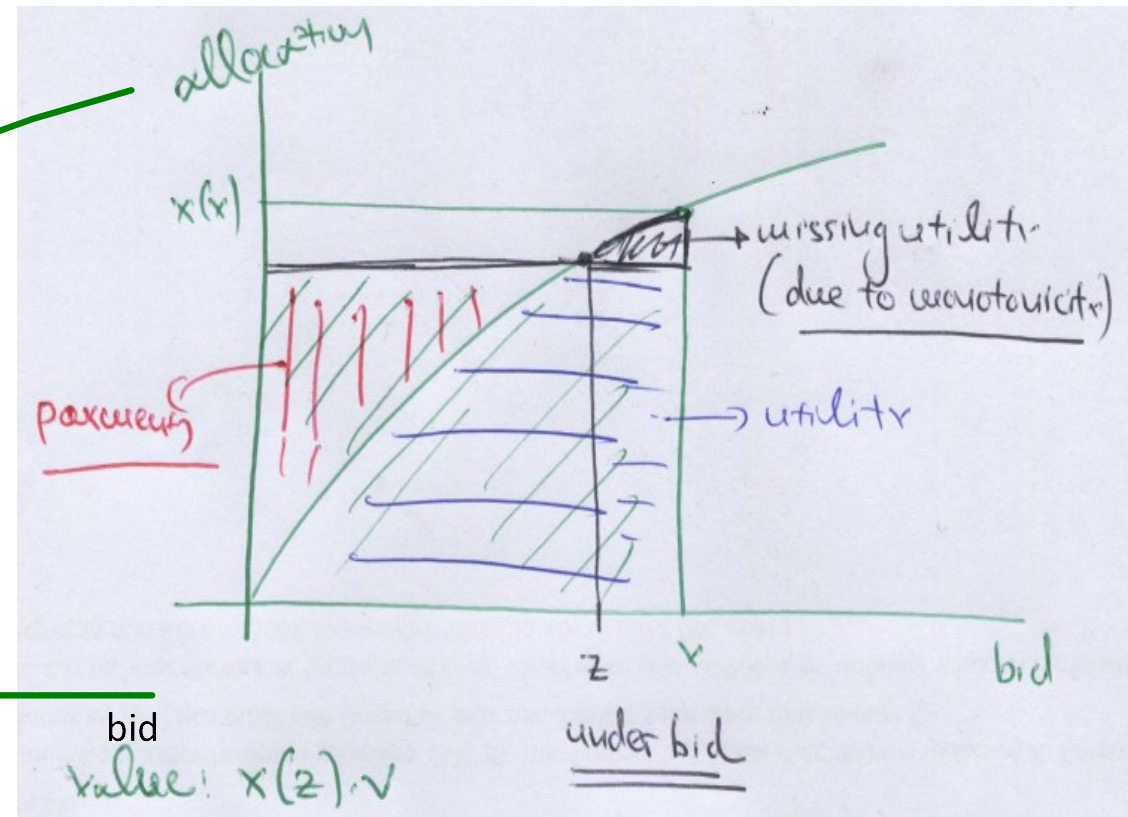 allocation
x(x)
missing utility
(due to monotonicity)
payment
utility
z
v
bid
under bid
bid
value: x(z).v